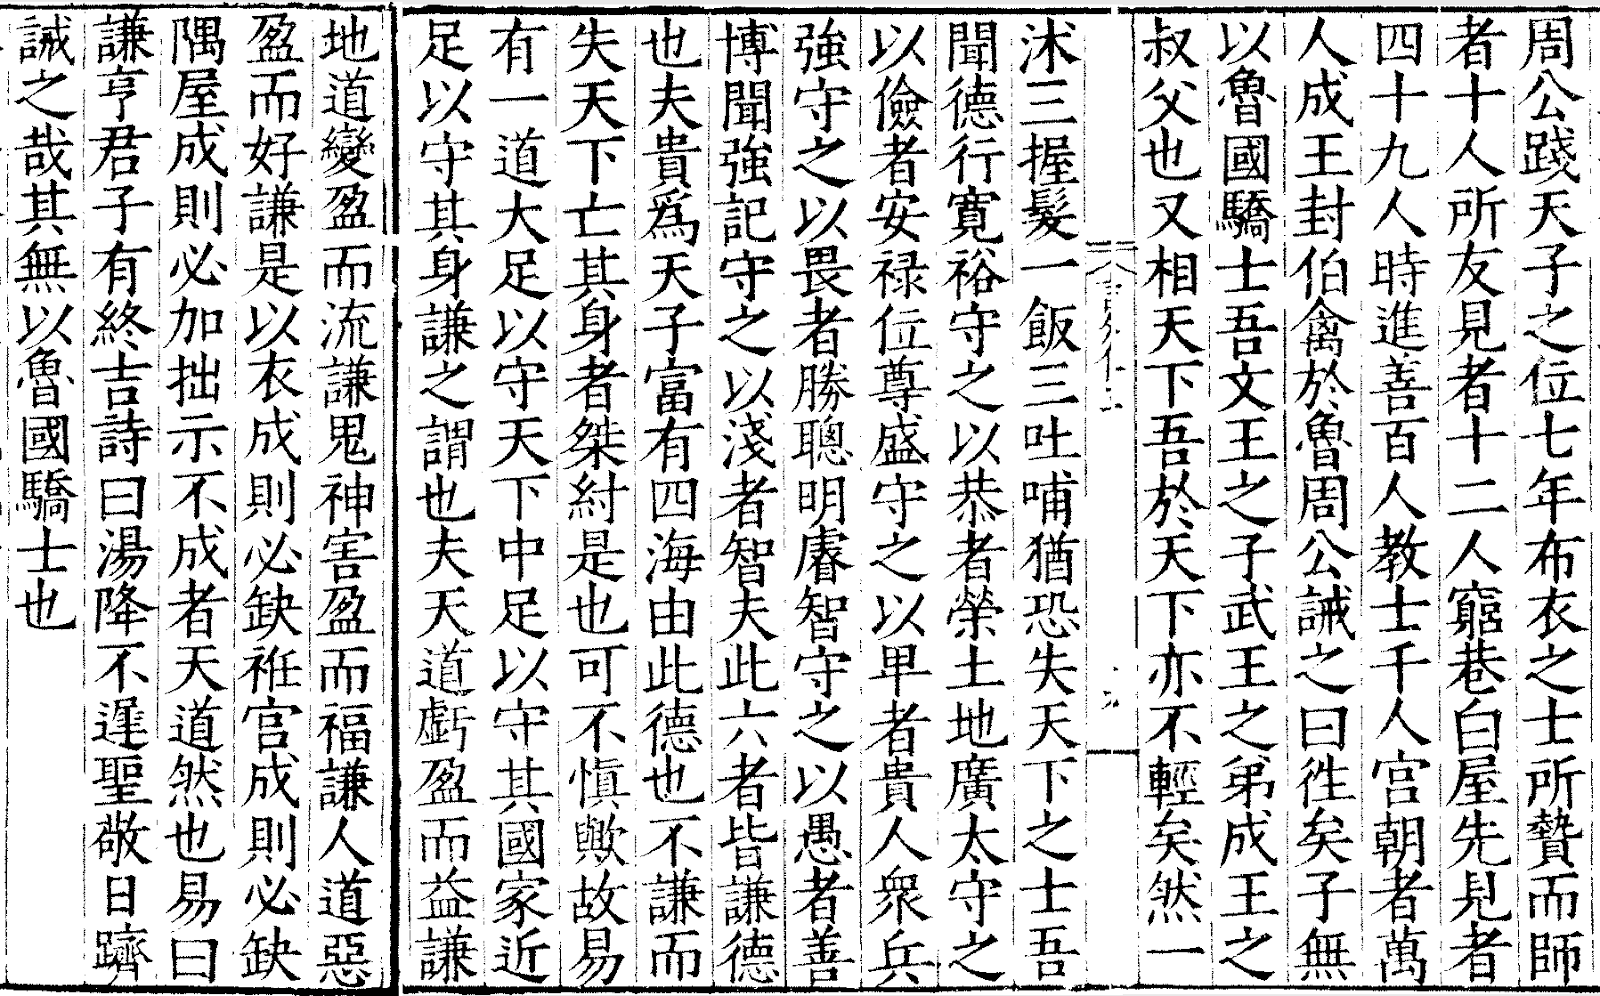 周公踐天子之位七年布衣之士所贄而師
者十人所友見者十二人窮巷白屋先見者
四十九人時進善百人教士千人宮朝者萬
人成王封伯禽於魯周公誡之曰徃矣子無
以魯國驕士吾文王之子武王之弟成王之
叔父也又相天下吾於天下亦不輕矣然一
沐三握髮一飯三吐哺猶恐失天下之士吾
聞德行寬裕守之以恭者榮土地廣大守之
以儉者安禄位尊盛守之以卑者貴人衆兵
強守之以畏者勝聰明睿智守之以愚者善
博聞強記守之以淺者智夫此六者皆謙德
也夫貴爲天子富有四海由此德也不謙而
失天下亡其身者桀紂是也可不慎歟故易
有一道大足以守天下中足以守其國家近
足以守其身謙之謂也夫天道虧盈而益謙
地道變盈而流謙鬼神害盈而福謙人道惡
盈而好謙是以衣成則必缺袵宮成則必缺
隅屋成則必加拙示不成者天道然也易曰
謙亨君子有終吉詩曰湯降不遲聖敬日躋
誡之哉其無以魯國驕士也